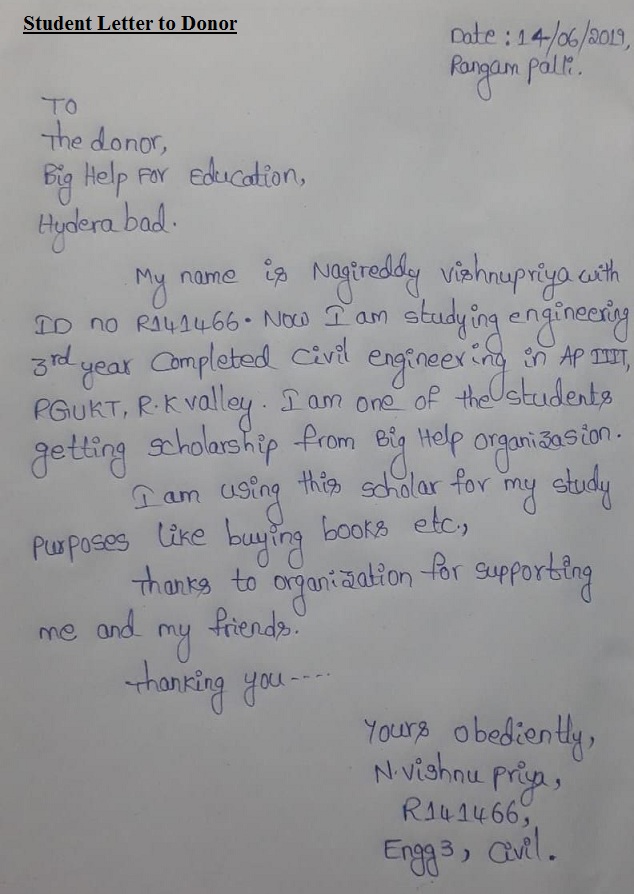 Student Letter to Donor
Date : 14/06/2019,
Rangam palli.
TO
The donor,
Big Help For Education,
Hyderabad.
My name is Nagireddy vishnupriya with
ID no R141466. Now I am studying engineering
3rd year completed civil engineering in AP IIIT,
RGUKT, R.K valley. I am one of the students
getting scholarship from Big Help organizasion.
I am using this scholar for my study
purposes like buying books etc.,
Thanks to organization for supporting
me and my friends.
Thanking you----
Yours obediently,
N.vishnu priya,
R141466,
Engg3, civil.